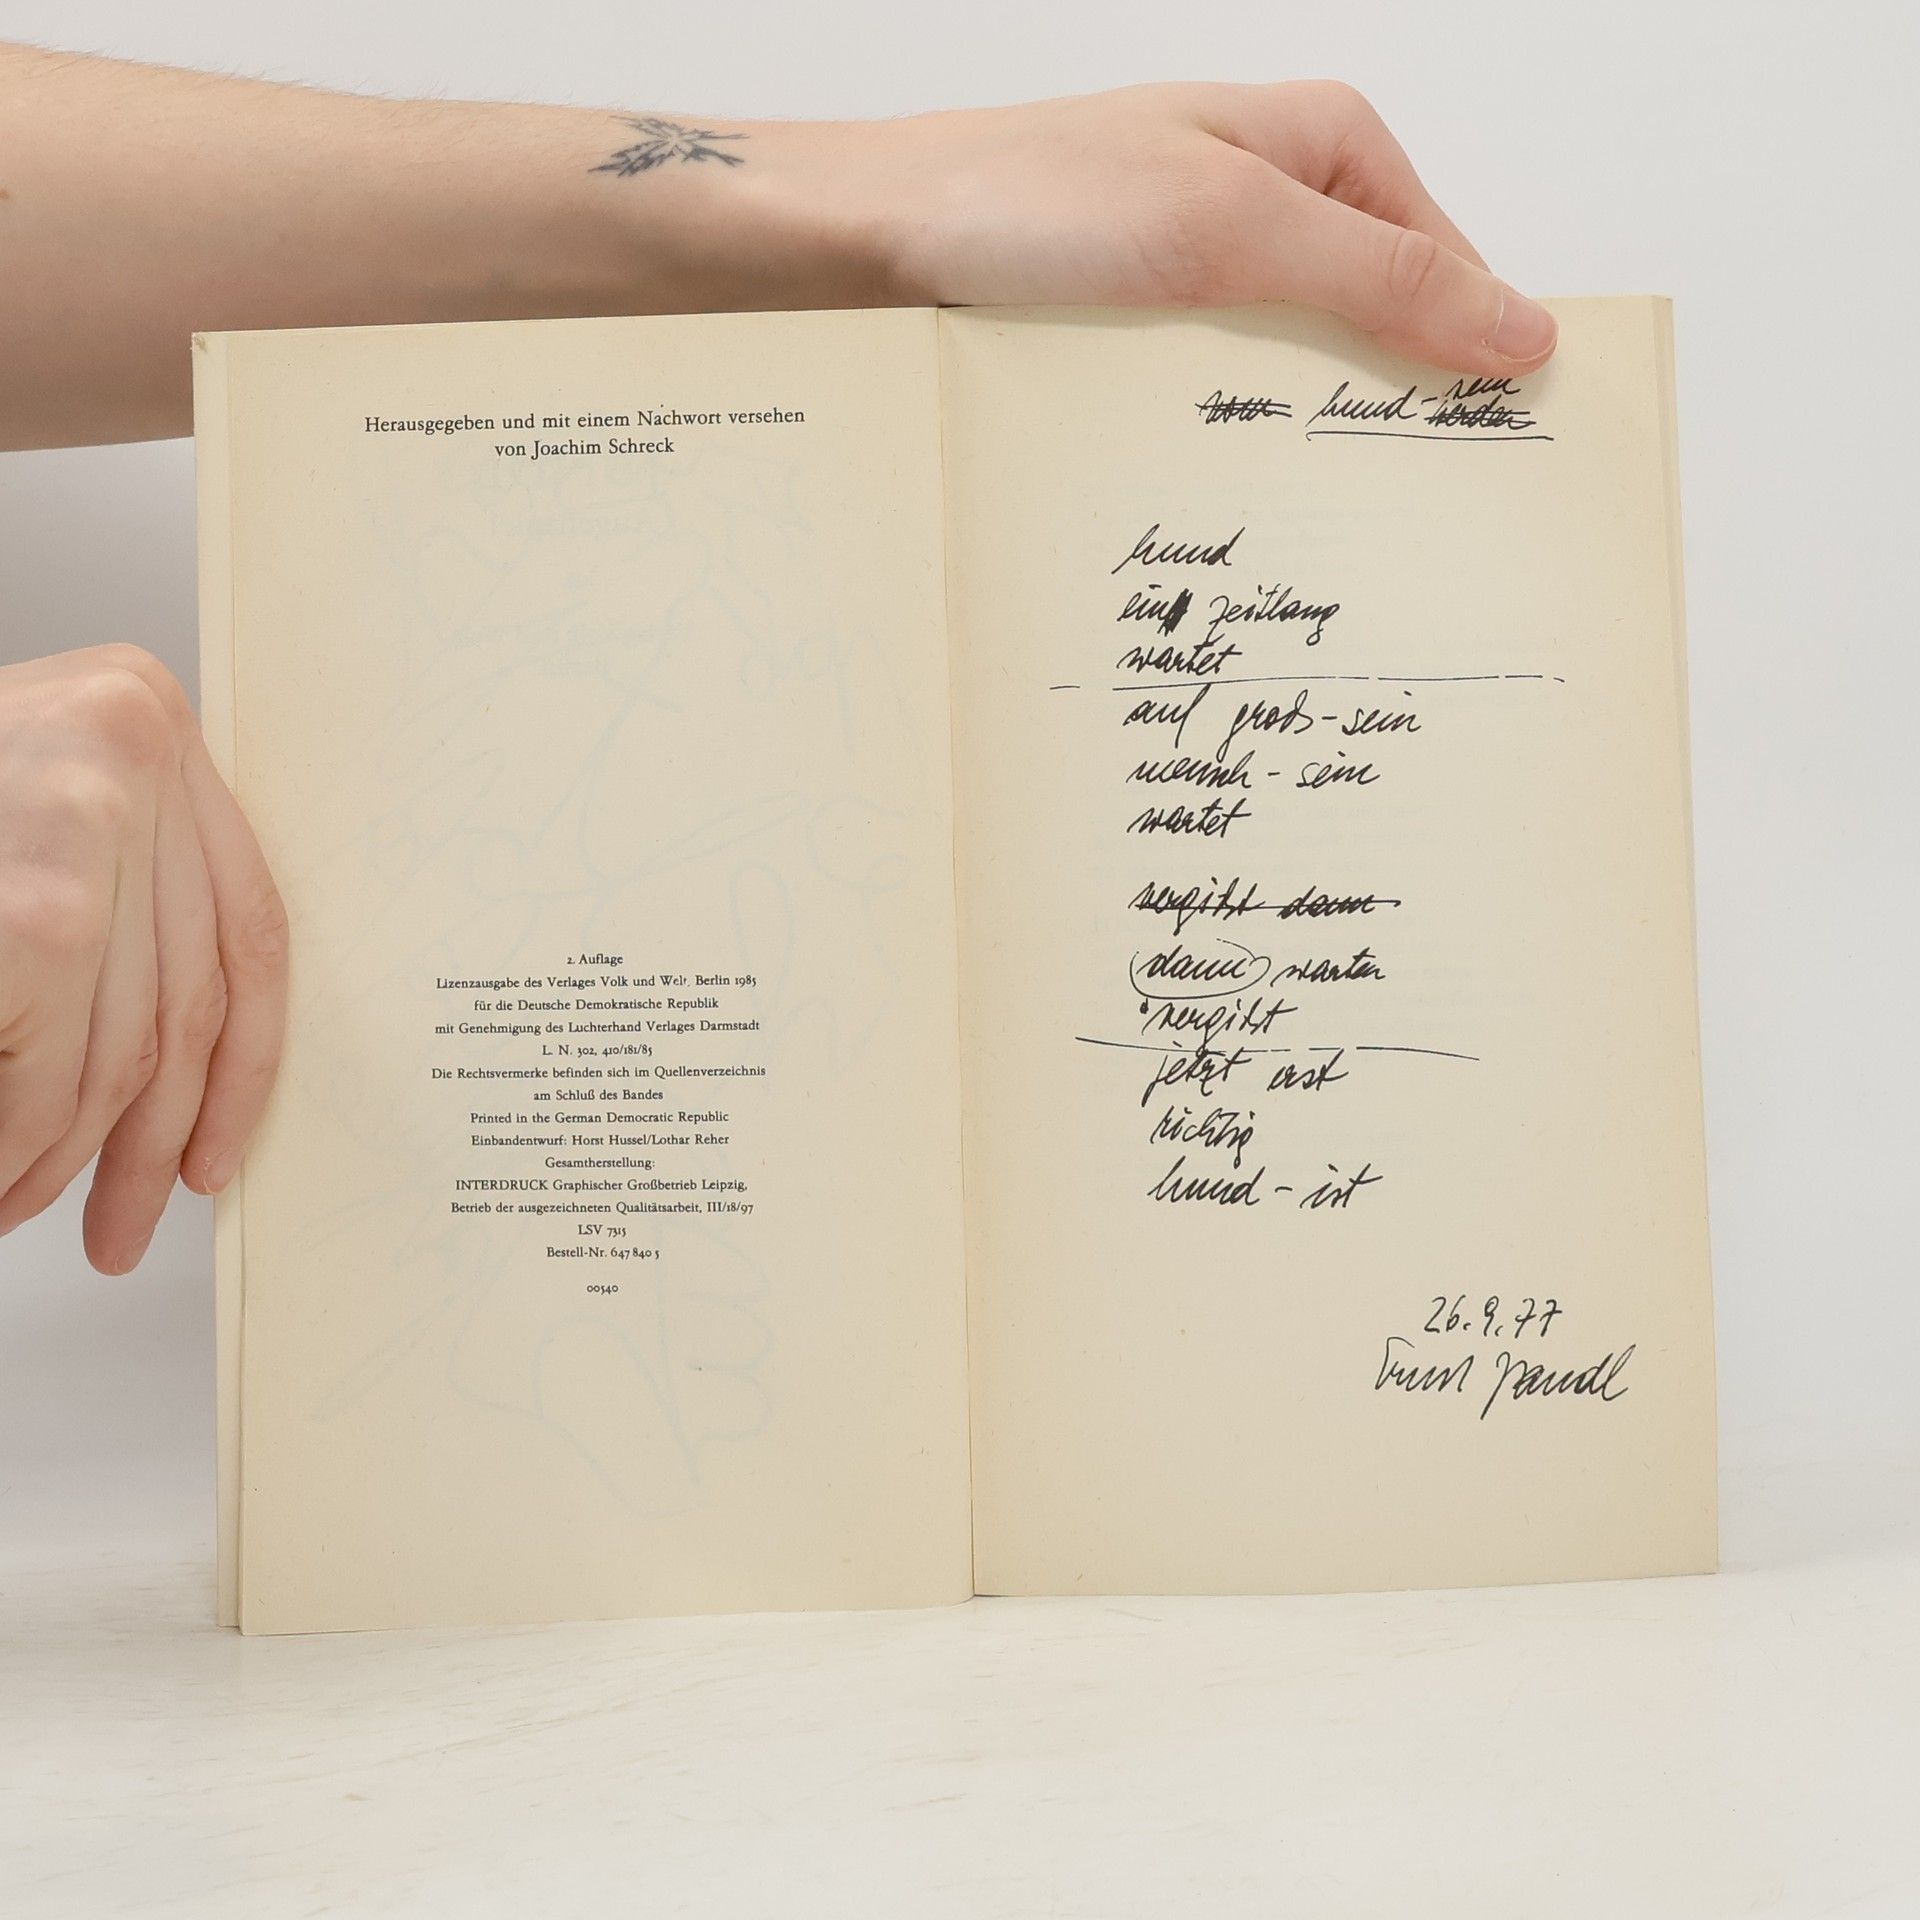 Herausgegeben und mit einem Nachwort versehen
von Joachim Schreck
2. Auflage
Lizenzausgabe des Verlages Volk und Welt, Berlin 1985
für die Deutsche Demokratische Republik
mit Genehmigung des Luchterhand Verlages Darmstadt
L. N. 302, 410/181/85
Die Rechtsvermerke befinden sich im Quellenverzeichnis
am Schluß des Bandes
Printed in the German Democratic Republic
Einbandentwurf: Horst Hussel/Lothar Reher
Gesamtherstellung:
INTERDRUCK Graphischer Großbetrieb Leipzig,
Betrieb der ausgezeichneten Qualitätsarbeit, III/18/97
LSV 7315
Bestell-Nr. 647 840 5
00540
sein
vom hund-werden
hund
ein zeitlang
wartet
auf groß-sein
mensch-sein
wartet
vergißt dann
dann warten
vergißt
jetzt erst
richtig
hund-ist
26.9.77
Ernst Jandl